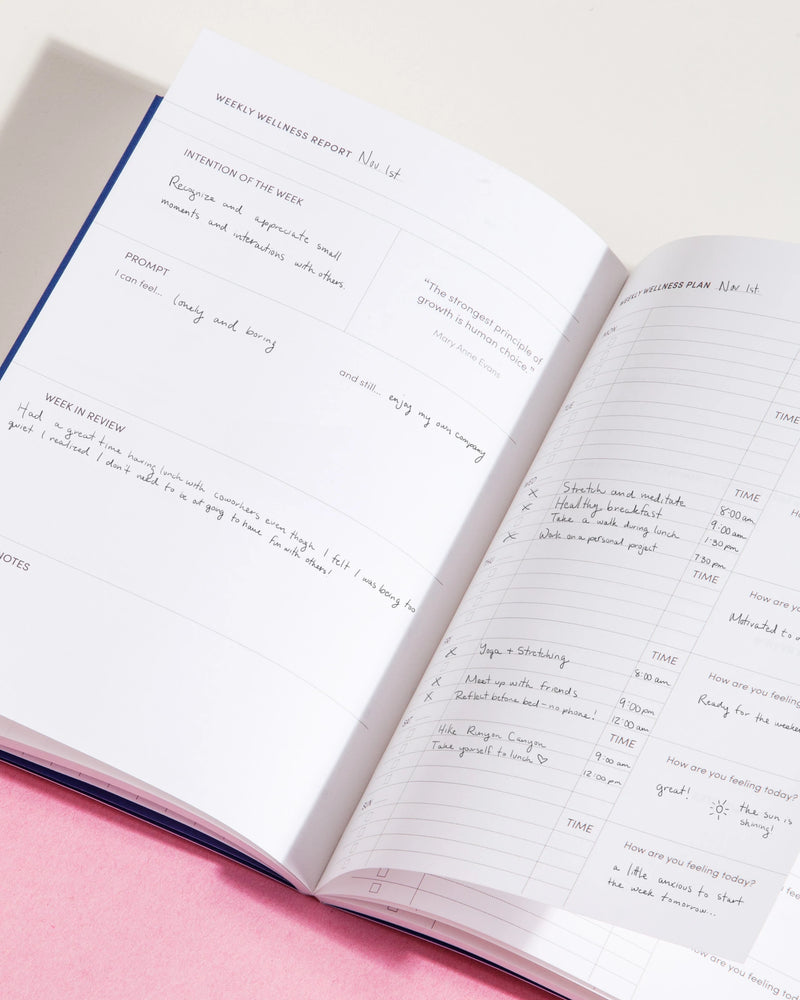 WEEKLY WELLNESS REPORT Nov. 1st
INTENTION OF THE WEEK
Recognize and appreciate small
moments and interactions with others.
"The strongest principle of
growth is human choice."
Mary Anne Evans
PROMPT
I can feel... lonely and boring
and still... enjoy my own company
WEEK IN REVIEW
Had a great time having lunch with coworkers even though I felt I was being too
quiet I realized I don't need to be at gong to have fun with others!
NOTES
WEEKLY WELLNESS PLAN Nov 1st
MON
TIME
TUE
TIME
WED
X Stretch and meditate 8:00 am
X Healthy breakfast 9:00 am
Take a walk during lunch 1:30 pm
X Work on a personal project 7:30 pm
TIME
How are yo
Motivated to
TIME
X Yoga + Stretching 8:00 am
X Meet up with friends 9:00 pm
X Reflect before bed - no phone! 12:00 am
How are you feeling
Ready for the weeke
TIME
Hike Runyon Canyon 9:00 am
Take yourself to lunch ♡ 12:00 pm
How are you feeling today?
great!
the sun is
shining!
SUN
TIME
How are you feeling today?
a little anxious to start
the week tomorrow...
How are you feeling today?